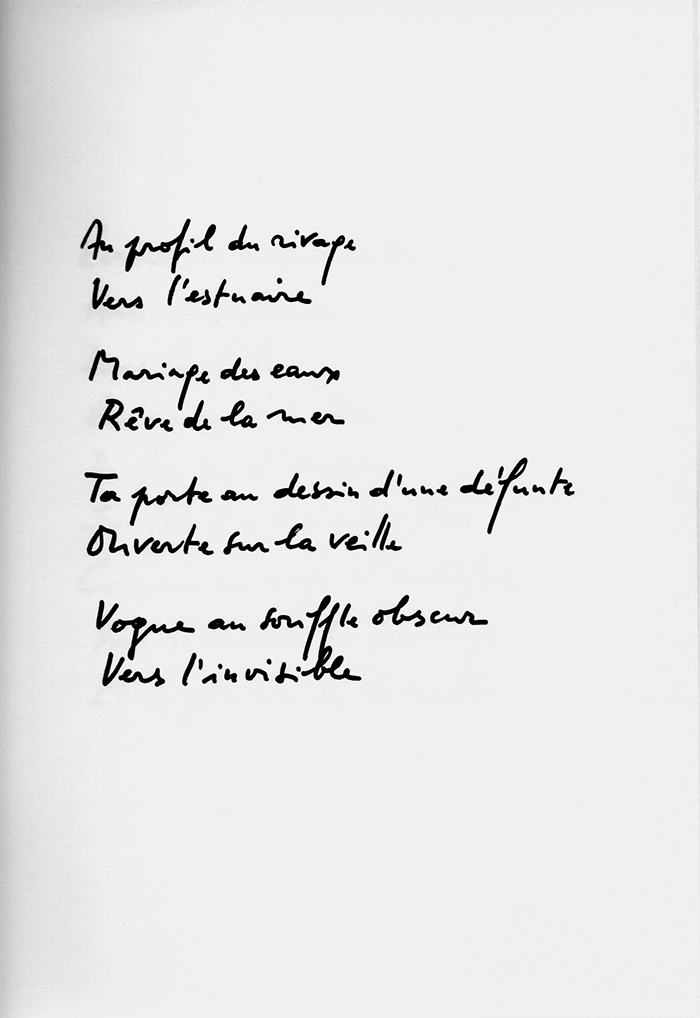 Au profil du rivage
Vers l'estuaire
Mariage des eaux
Rêve de la mer
Ta porte au dessin d'une défunte
Ouverte sur la veille
Vogue au souffle obscur
Vers l'invisible